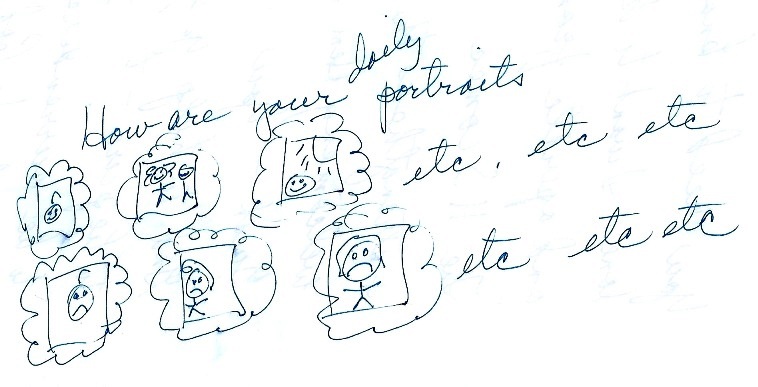 How are your daily portraits
etc, etc etc
etc etc etc